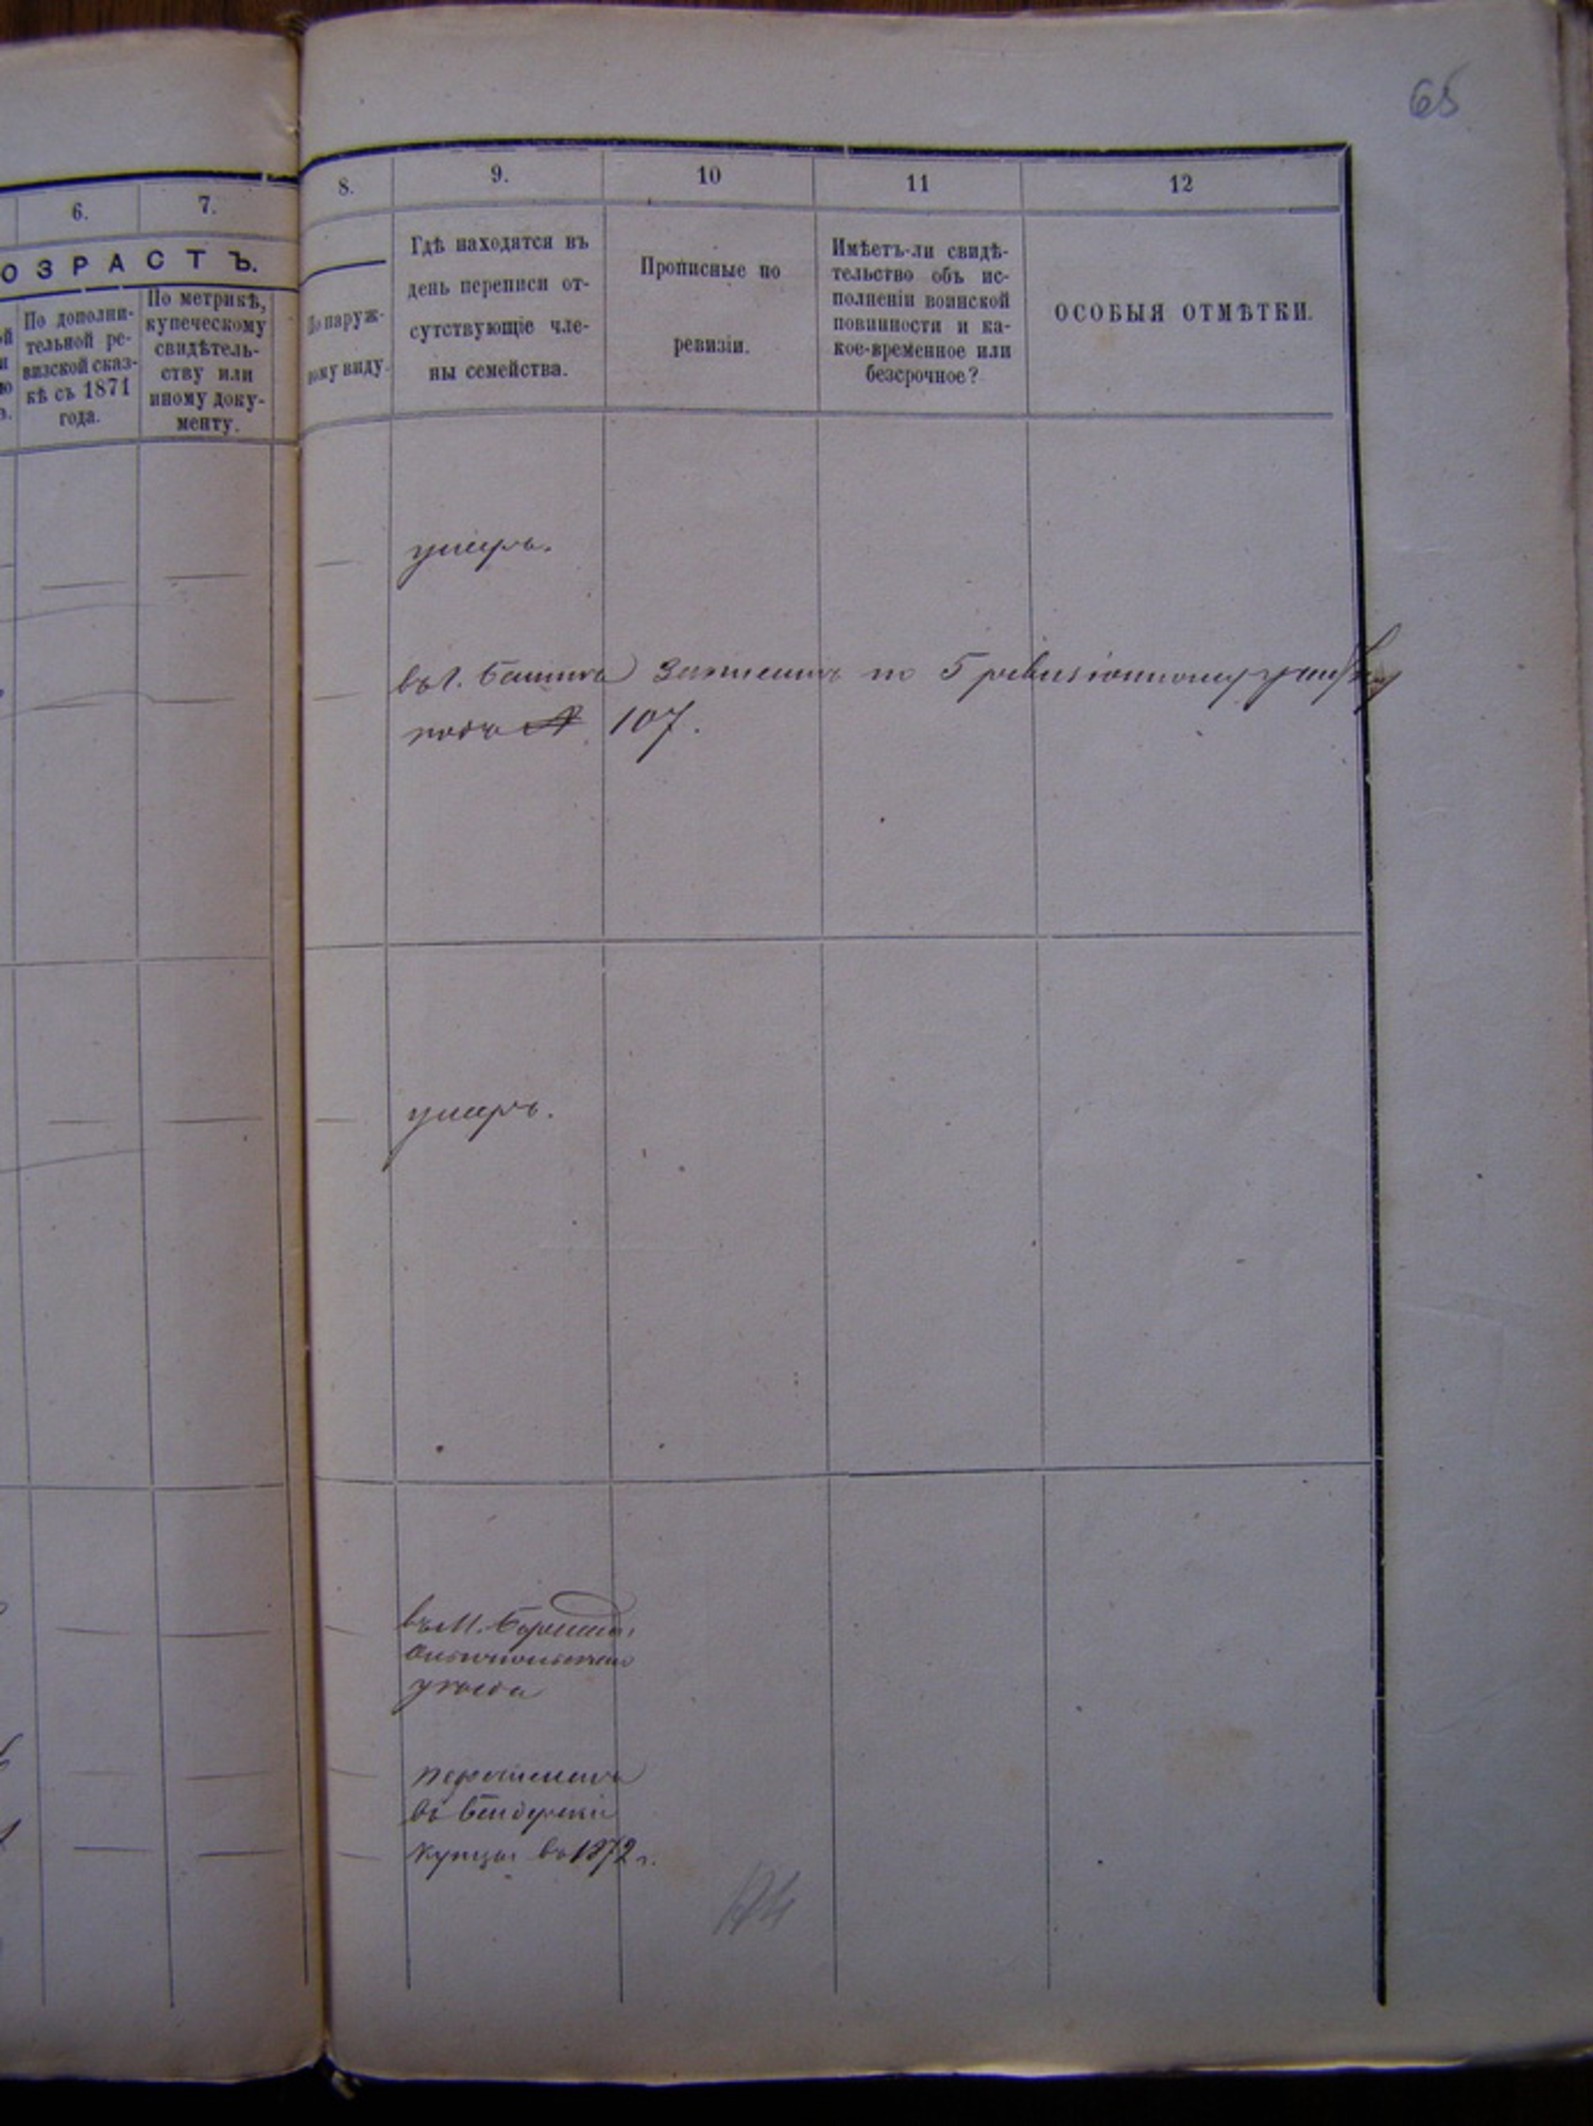 65
6.
7.
8.
9.
10
11
12
ОЗРАСТЪ.
По дополни-
тельной ре-
визской сказ-
кѣ съ 1871
года.
По метрикѣ,
купеческому
свидѣтель-
ству или
иному доку-
менту.
По наруж-
ному виду.
Гдѣ находятся въ
день переписи от-
сутствующіе чле-
ны семейства.
Прописные по
ревизіи.
Имѣетъ-ли свидѣ-
тельство объ ис-
полненіи воинской
повинности и ка-
кое-временное или
безсрочное?
ОСОБЫЯ ОТМѢТКИ.
умеръ.
въ г. записанъ по 5 ревизіонному
подъ № 107.
умеръ.
въ М.
уѣзда
въ Бендерскіе
купцы въ 1872 г.